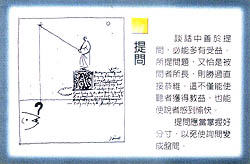 提問
談話中善於提
問，必能多有受益。
所提問題，又恰是被
問者所長，則勝過直
接恭維，這不僅能使
聽者獲得教益，也能
使說者感到愉快。
提問應當掌握好
分寸，以免使詢問變
成盤問。
?